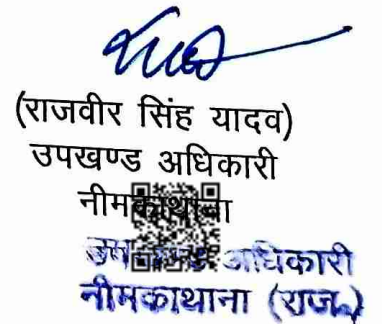 (राजवीर सिंह यादव)
उपखण्ड अधिकारी
नीमकाथाना
अधिकारी
नीमकाथाना (राज.)